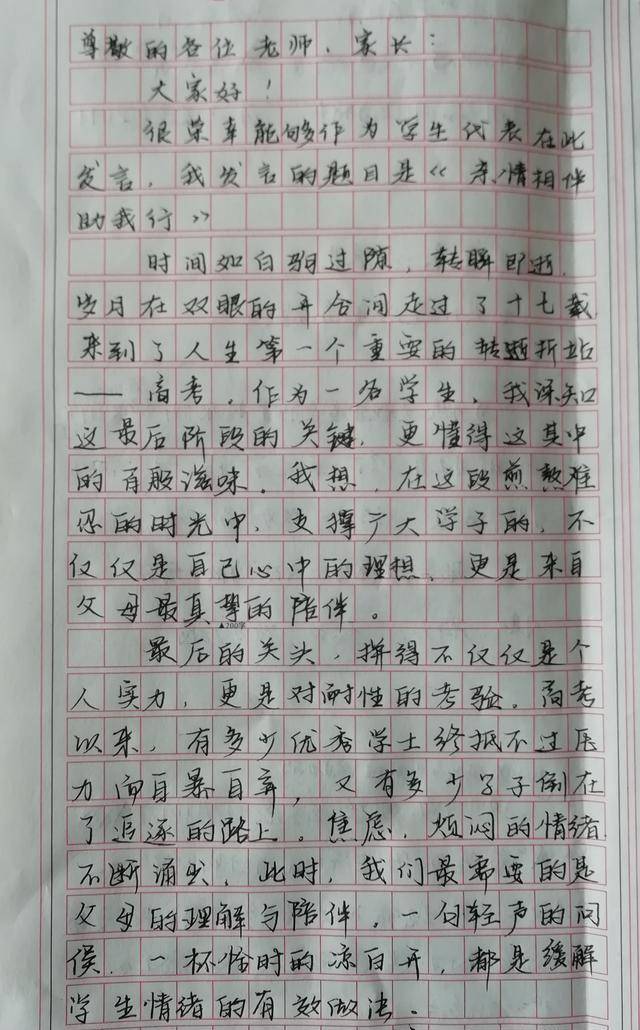 尊敬的各位老师、家长：
大家好！
很荣幸能够作为学生代表在此
发言，我发言的题目是《亲情相伴
助我行》
时间如白驹过隙，转瞬即逝，
岁月在双眼的开合间走过了十七载
来到了人生第一个重要的转折站
——高考，作为一名学生，我深知
这最后阶段的关键，更懂得这其中
的百般滋味。我想，在这段煎熬难
忍的时光中，支撑广大学子的，不
仅仅是自己心中的理想，更是来自
父母最真挚的陪伴。
▲200字
最后的关头，拼得不仅仅是个
人实力，更是对耐性的考验。高考
以来，有多少优秀学士终抵不过压
力而自暴自弃，又有多少学子倒在
了追逐的路上。焦虑，烦闷的情绪
不断涌出，此时，我们最需要的是
父母的理解与陪伴，一句轻声的问
侯，一杯恰时的凉白开，都是缓解
学生情绪的有效做法。